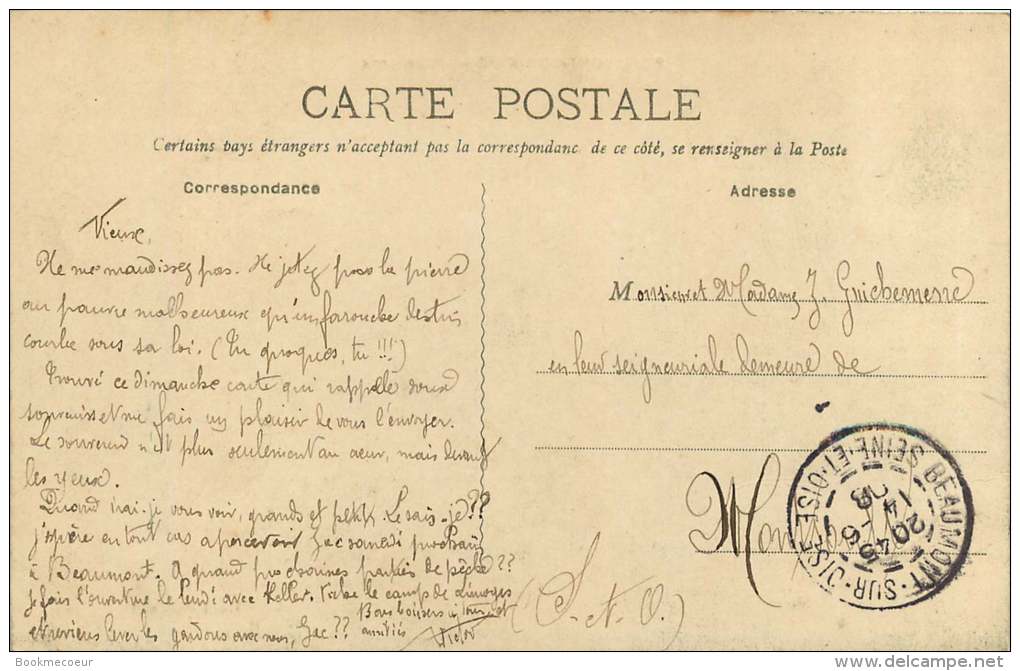 CARTE POSTALE
Certains pays étrangers n'acceptent pas la correspondanc de ce côté, se renseigner à la Poste
Correspondance
Vieux,
Ne me maudissez pas. Ne jetez pas la pierre
au pauvre malheureux qu'un farouche destin
courbe sous sa loi. (Tu quoques, tu !!!)
Trouvé ce dimanche carte qui rappelle doux
souvenirs et me fais un plaisir de vous l'envoyer.
Le souvenir n'est plus seulement au cœur, mais devant
les yeux.
Quand irai-je vous voir, grands et petits. Le sais-je??
j'espère en tout cas apercevoir Jac samedi prochain
à Beaumont. A quand prochaines parties de pêche??
je fais l'ouverture le lundi avec Keller. le camp de Limoges
et reviens lever les gardons avec nous, Jac??
Bons baisers à tous et
amitiés
Victor
Adresse
Monsieur et Madame J. Guichemerre
en leur seigneuriale demeure de
(S.-et-O.)
BEAUMONT-SUR-OISE
SEINE-ET-OISE
2045
14-6
08
Bookmecoeur
www.delcampe.net